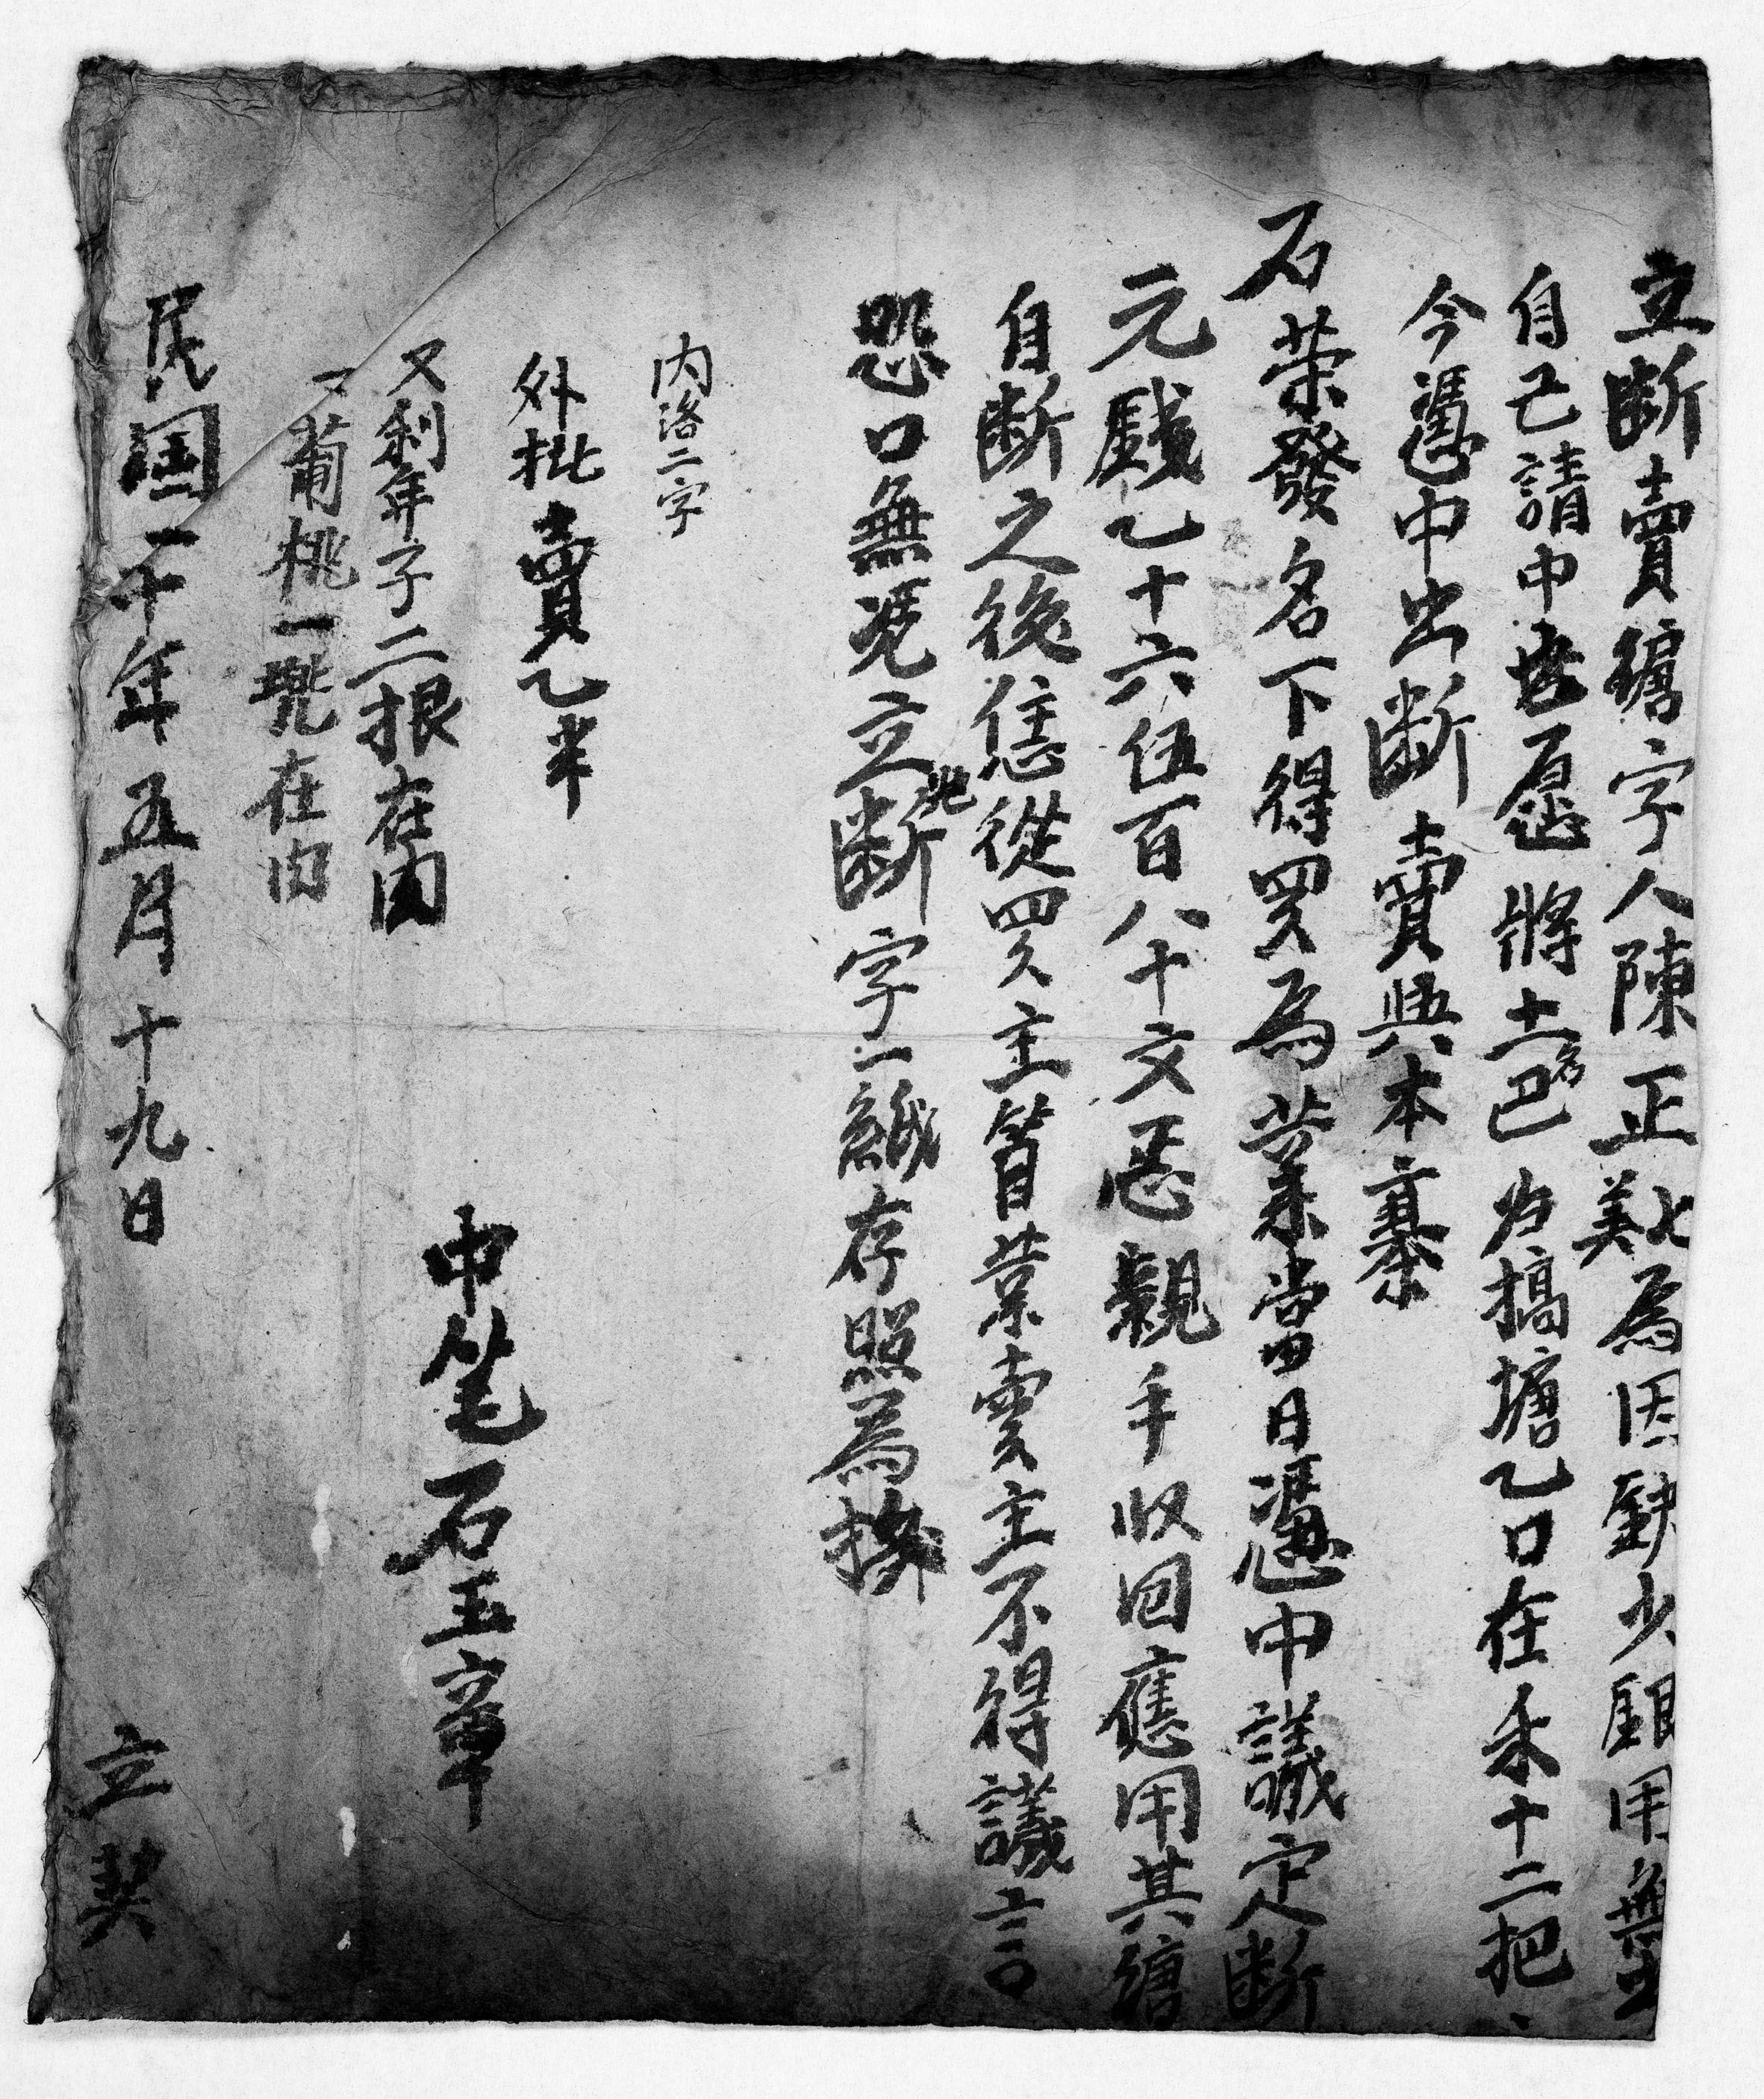 立断賣塘字人陳正美為因缺少銀用無
自己請中心愿將土名巴為搞塘乙口在禾十二把
今憑中出断賣與本寨
石荣發名下得買為業當日憑中議定断
元錢乙十六伍百八十文正親手收回應用其塘
自断之後恁從買主管業賣主不得議言
恐口無凭立此断字一紙存照為據
内洛二字
外批賣乙半
又利年子二根在内
又葡桃一蔸在内
中笔石玉章
民国二十年五月十九日立契